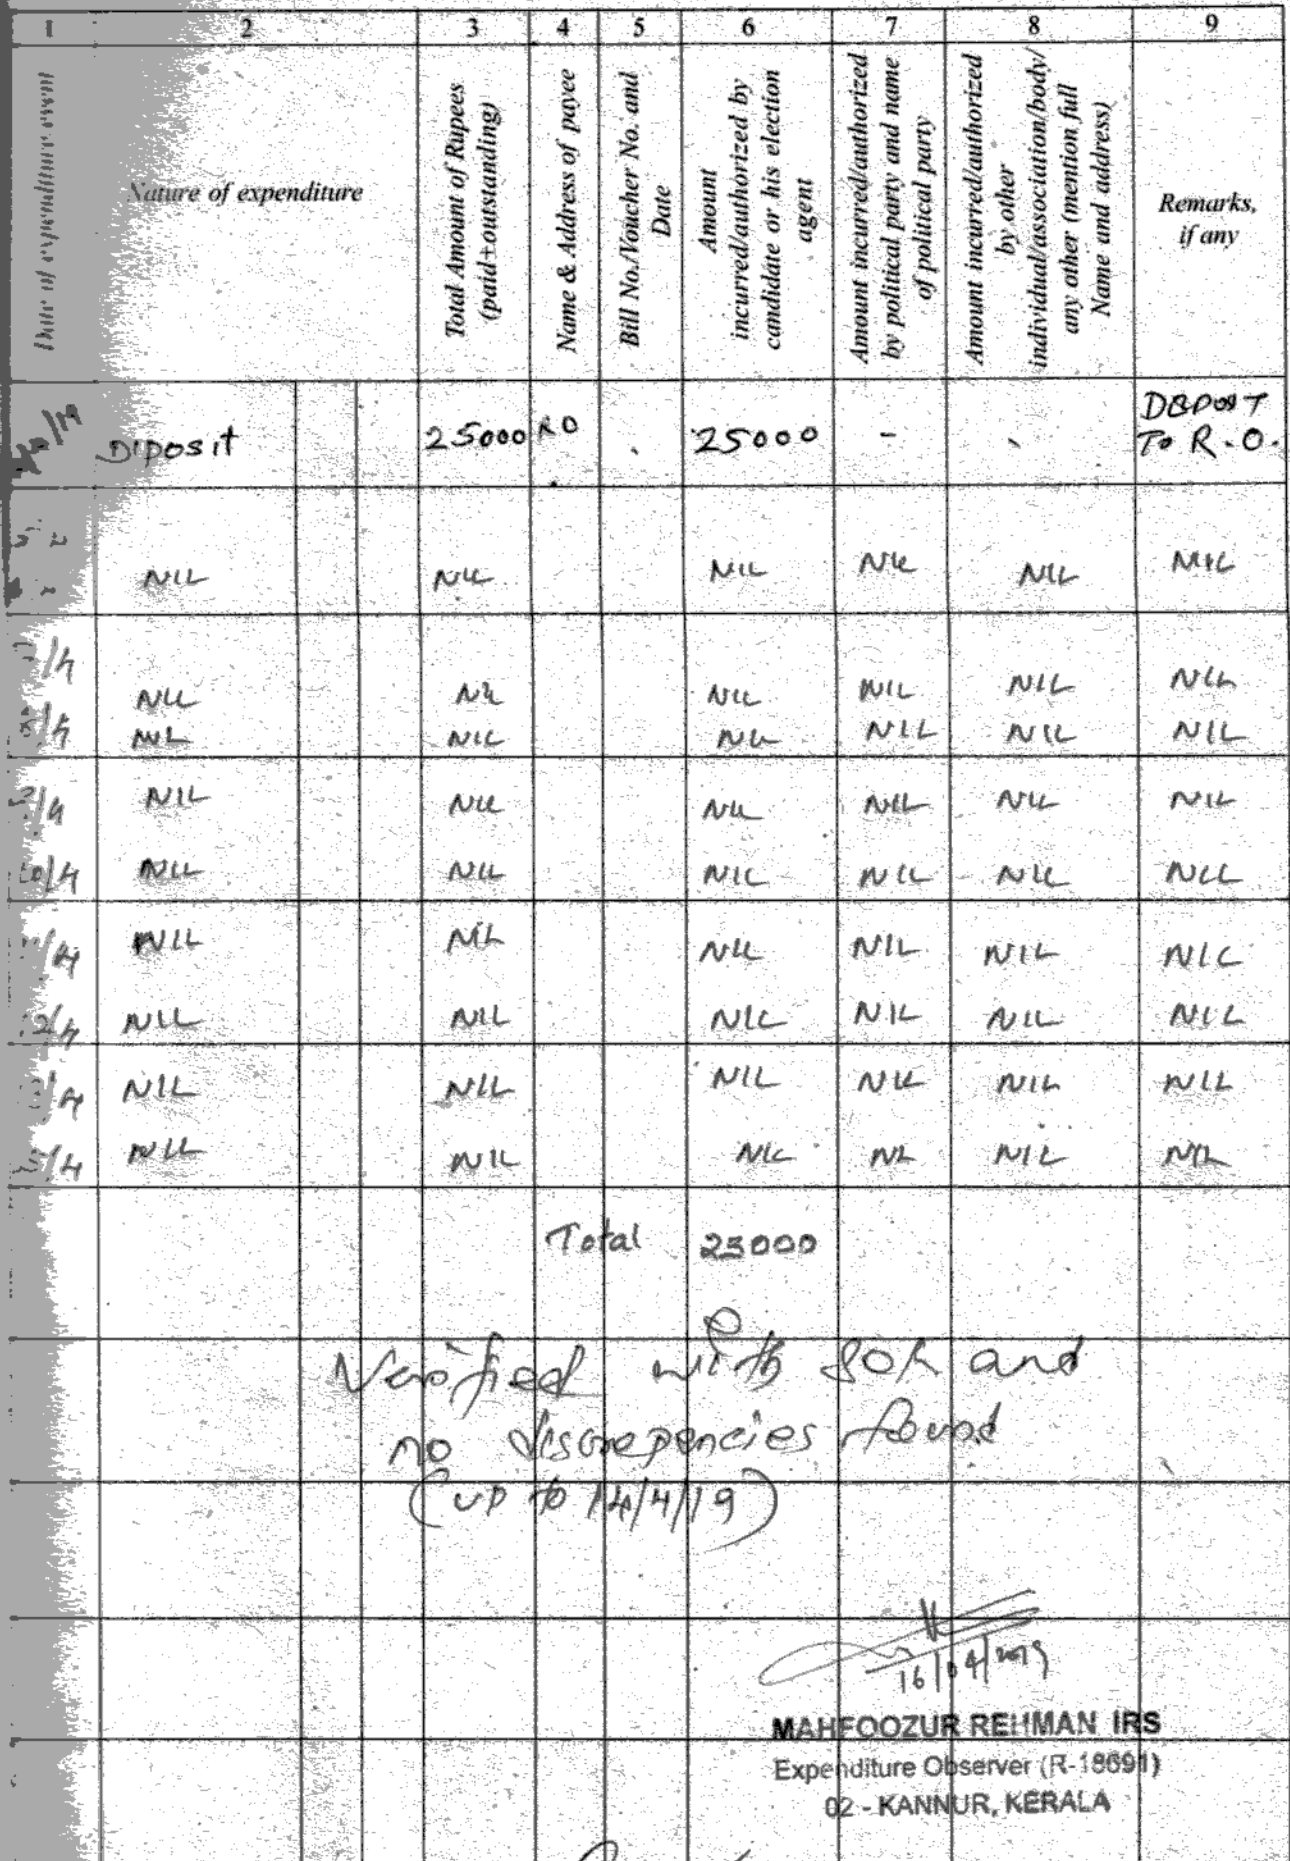 1 2 3 4 5 6 7 8 9
Date of expenditure/event
Nature of expenditure
Total Amount of Rupees (paid+outstanding)
Name & Address of payee
Bill No./Voucher No. and Date
Amount incurred/authorized by candidate or his election agent
Amount incurred/authorized by political party and name of political party
Amount incurred/authorized by other individual/association/body/any other (mention full Name and address)
Remarks, if any
Diposit 25000 RO . 25000 - - DEPOSIT To R.O.
NIL NIL NIL NIL NIL NIL
/4 NIL NIL NIL NIL NIL NIL
/4 NIL NIL NIL NIL NIL NIL
/4 NIL NIL NIL NIL NIL NIL
10/4 NIL NIL NIL NIL NIL NIL
/4 NIL NIL NIL NIL NIL NIL
12/4 NIL NIL NIL NIL NIL NIL
/4 NIL NIL NIL NIL NIL NIL
/4 NIL NIL NIL NIL NIL NIL
Total 25000
Verified with SOR and
no discrepencies found
(up to 14/4/19)
16/04/2019
MAHFOOZUR REHMAN IRS
Expenditure Observer (R-18691)
02 - KANNUR, KERALA